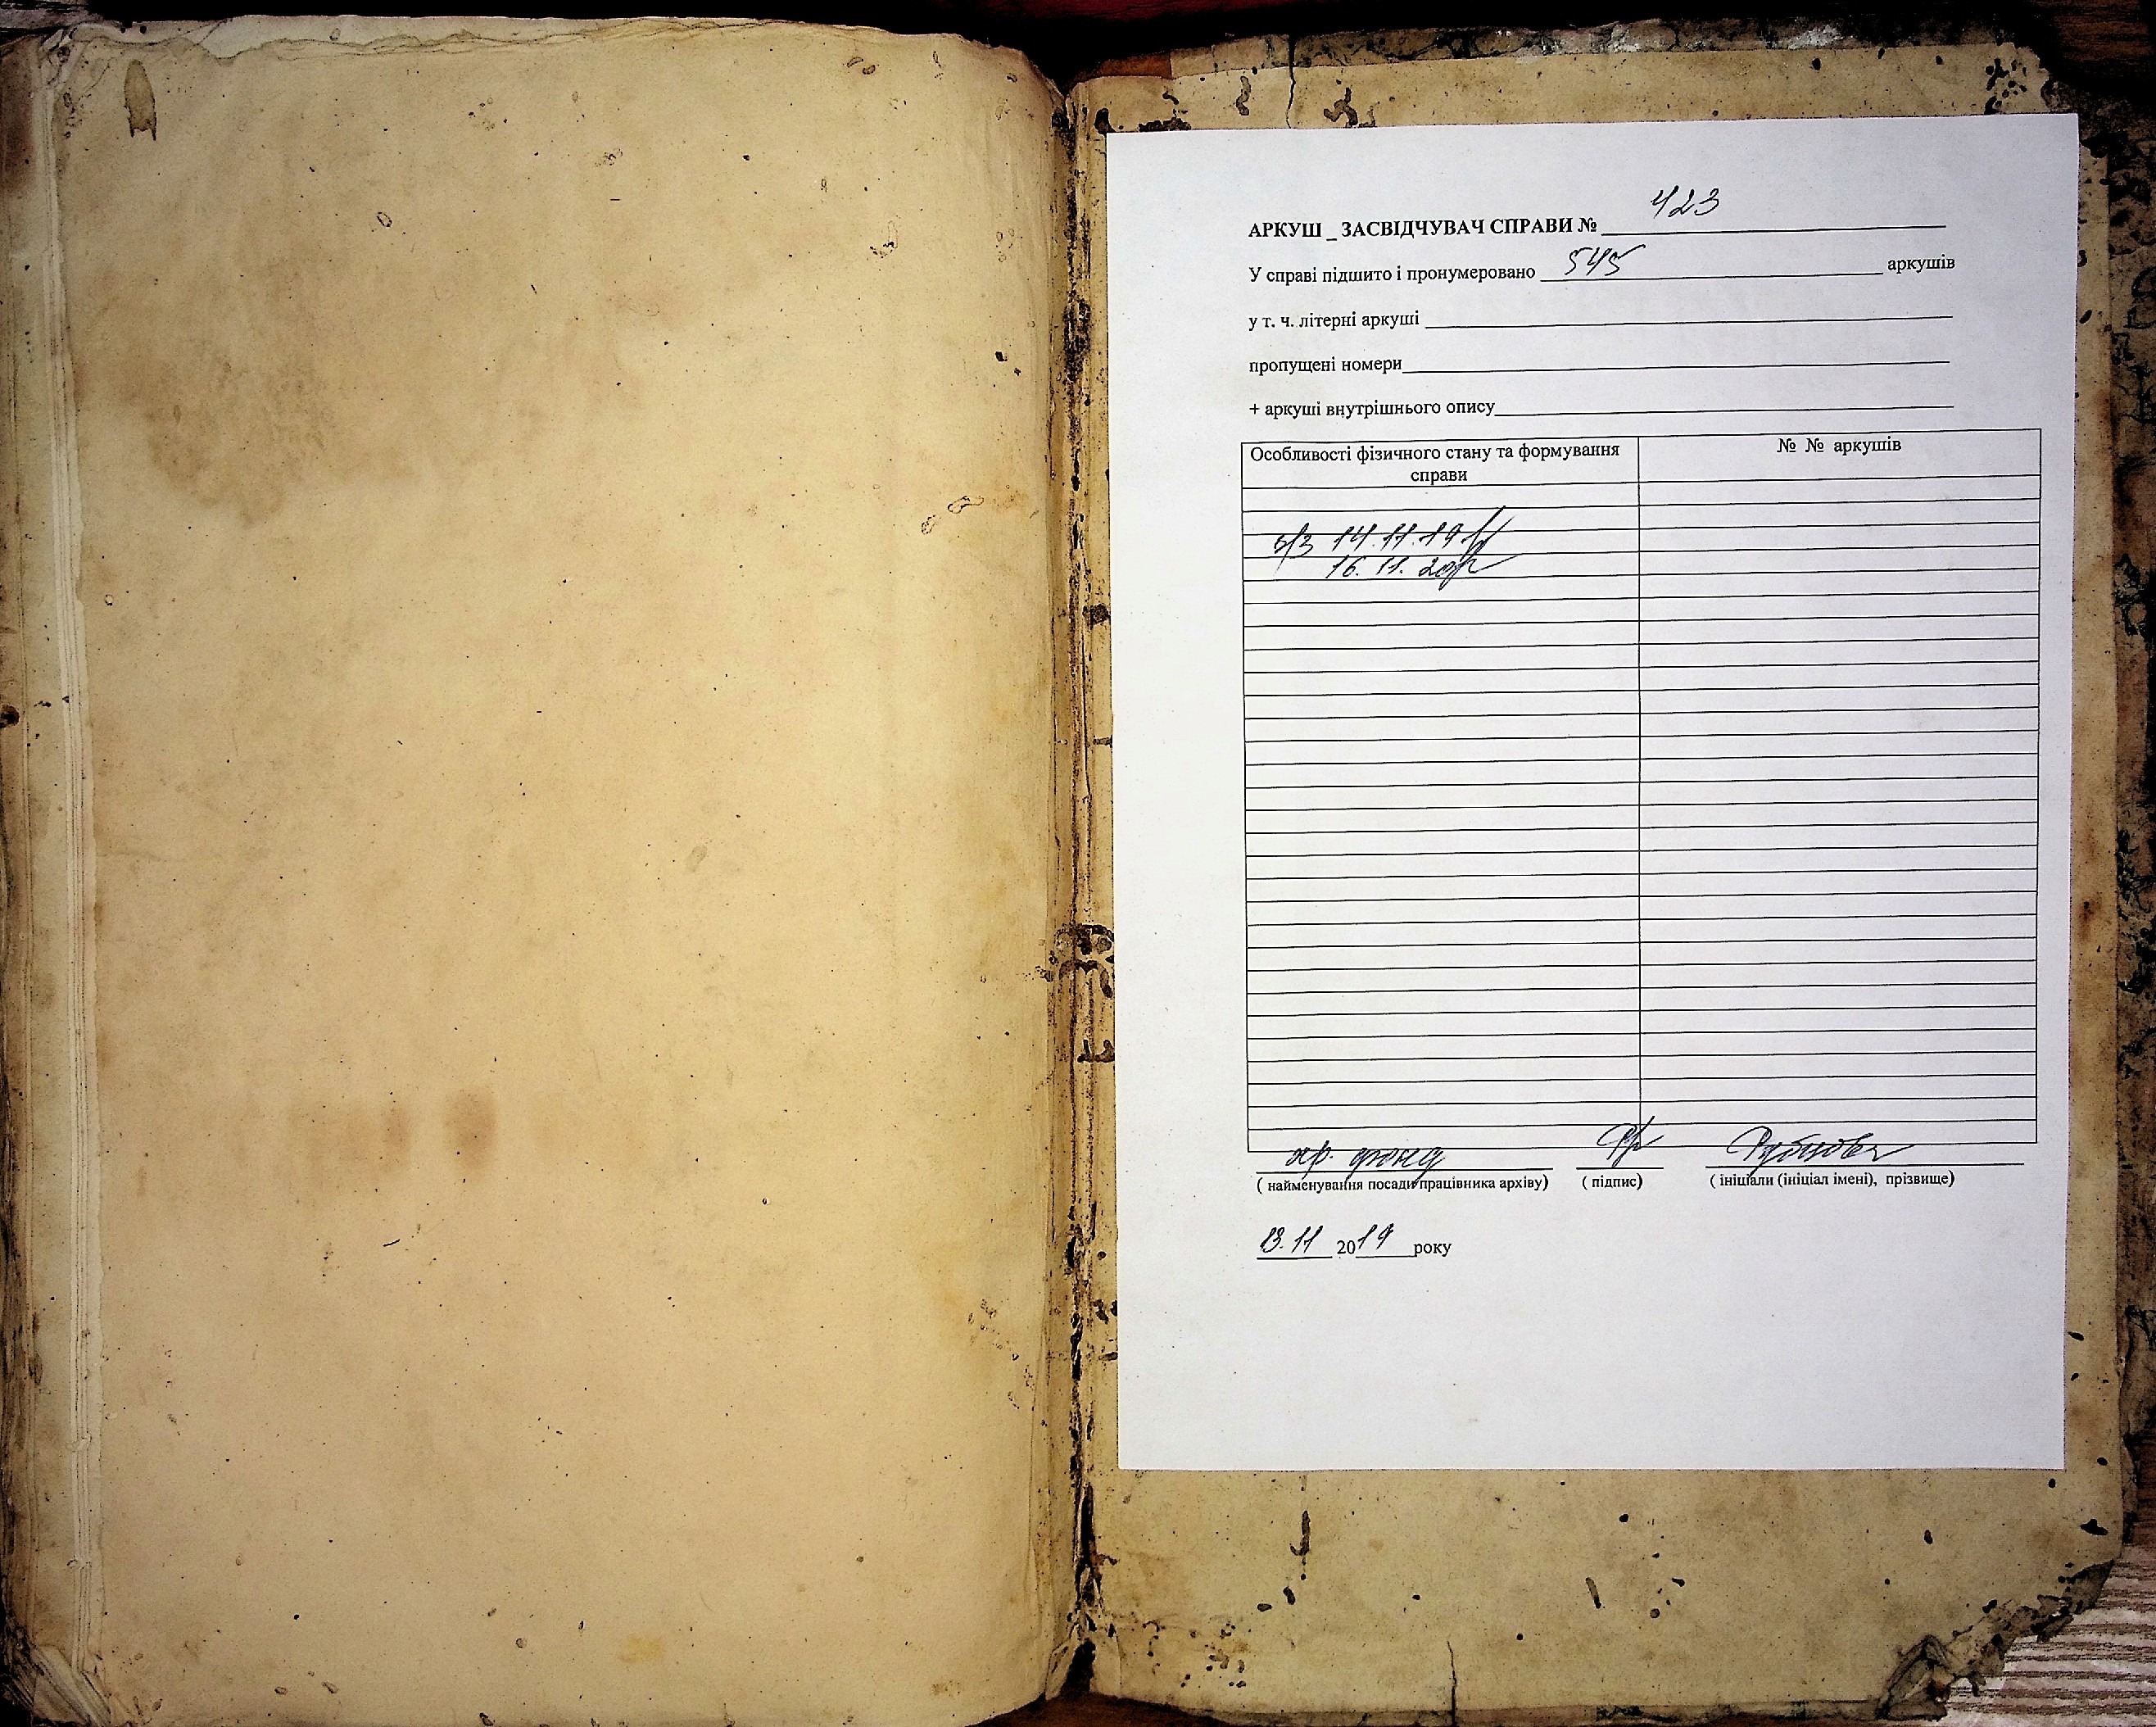 423
АРКУШ _ ЗАСВІДЧУВАЧ СПРАВИ №
У справі підшито і пронумеровано 545 аркушів
у т. ч. літерні аркуші
пропущені номери
+ аркуші внутрішнього опису
Особливості фізичного стану та формування
справи
№ № аркушів
14.11.19
16.11.20
хр. фонд
Рубцова
( найменування посади працівника архіву) ( підпис) ( ініціали (ініціал імені), прізвище)
13.11 2019 року